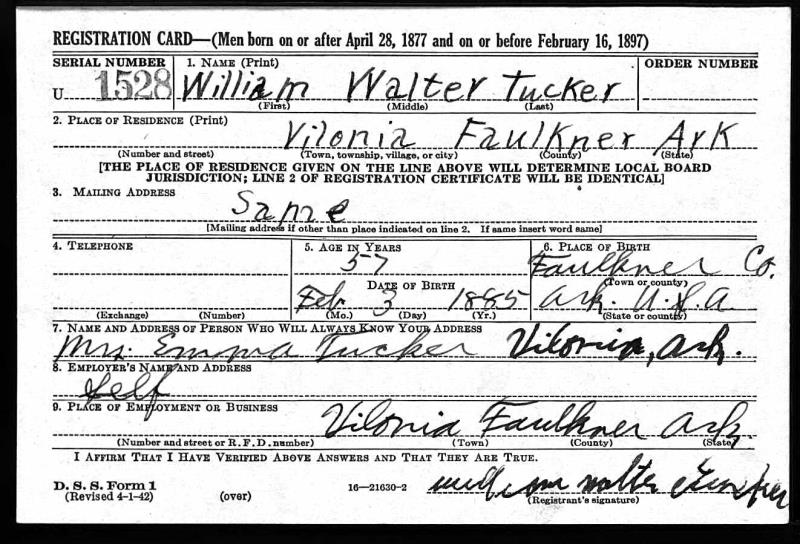 REGISTRATION CARD—(Men born on or after April 28, 1877 and on or before February 16, 1897)
SERIAL NUMBER 1. NAME (Print) ORDER NUMBER
U 1528 William Walter Tucker
(First) (Middle) (Last)
2. PLACE OF RESIDENCE (Print)
Vilonia Faulkner Ark
(Number and street) (Town, township, village, or city) (County) (State)
[THE PLACE OF RESIDENCE GIVEN ON THE LINE ABOVE WILL DETERMINE LOCAL BOARD
JURISDICTION; LINE 2 OF REGISTRATION CERTIFICATE WILL BE IDENTICAL]
3. MAILING ADDRESS
Same
[Mailing address if other than place indicated on line 2. If same insert word same]
4. TELEPHONE 5. AGE IN YEARS 6. PLACE OF BIRTH
57 Faulkner Co.
DATE OF BIRTH (Town or county)
Feb. 3 1885 Ark. U.S.A
(Exchange) (Number) (Mo.) (Day) (Yr.) (State or country)
7. NAME AND ADDRESS OF PERSON WHO WILL ALWAYS KNOW YOUR ADDRESS
Mrs. Emma Tucker Vilonia, Ark.
8. EMPLOYER'S NAME AND ADDRESS
Self
9. PLACE OF EMPLOYMENT OR BUSINESS
Vilonia Faulkner Ark.
(Number and street or R. F. D. number) (Town) (County) (State)
I AFFIRM THAT I HAVE VERIFIED ABOVE ANSWERS AND THAT THEY ARE TRUE.
D. S. S. Form 1
(Revised 4-1-42) (over) 16—21630-2 william walter Tucker
(Registrant's signature)